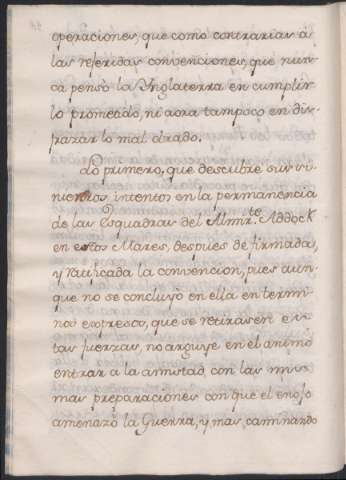 operaciones, que como contrarias á
las referidas convenciones, que nun-
ca pensó la Ynglaterra en cumplir
lo prometido, ni aora tampoco en dis-
parar lo mal obrado.
Lo primero, que descubre sus vi
intentos en la permanencia
de las Esquadras del Almir.te Addock
en estos Mares, despues de firmada,
y ratificada la convencion, pues aun-
que no se concluyó en ella en termi-
nos expresos, que se retirasen es-
tas fuerzas, no arguye en el animo
entrar a la amistad, con las mis-
mas preparaciones con que el enojo
amenazó la Guerra, y mas, caminando